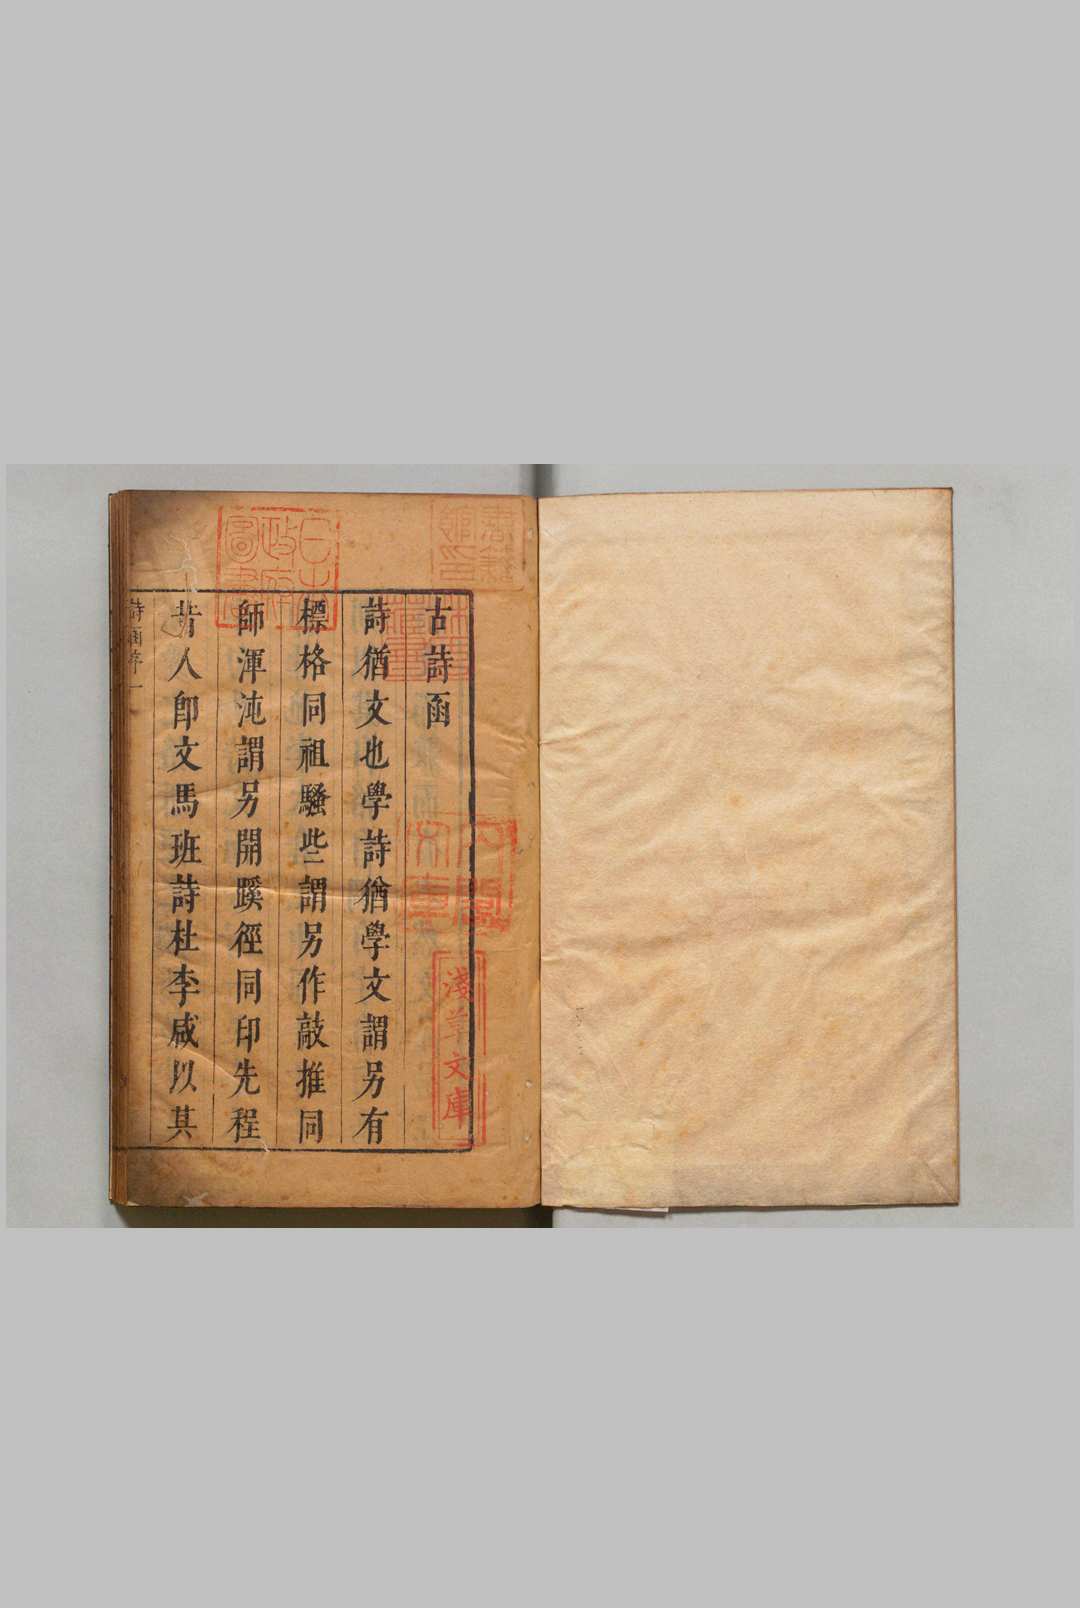 古詩函
詩猶文也學詩猶學文謂另有
標格同祖騷些謂另作敲推同
師渾沌謂另開蹊徑同印先程
昔人卽文馬班詩杜李咸以其
詩函序一
日本政府圖書
淺草文庫
內閣文庫